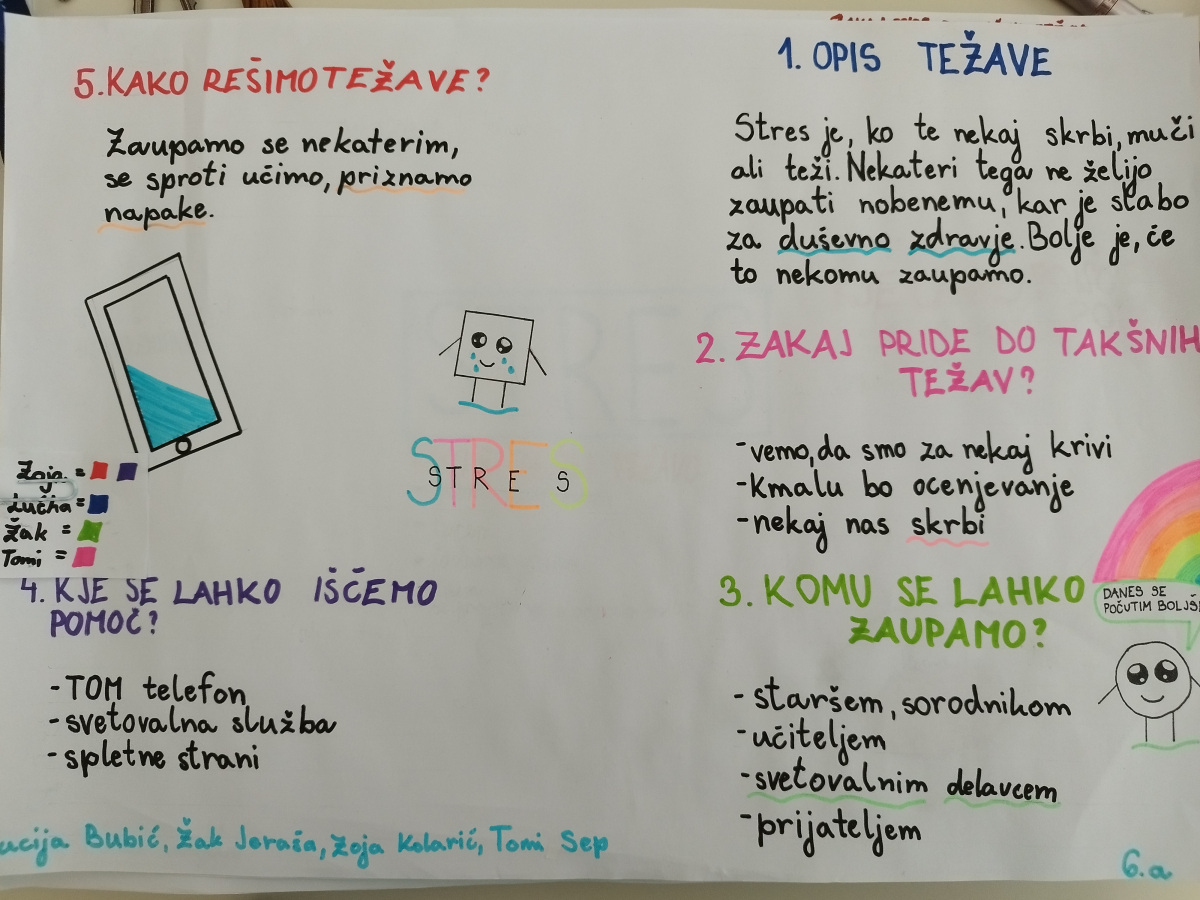 1. OPIS TEŽAVE
Stres je, ko te nekaj skrbi, muči
ali teži. Nekateri tega ne želijo
zaupati nobenemu, kar je slabo
za duševno zdravje. Bolje je, če
to nekomu zaupamo.
2. ZAKAJ PRIDE DO TAKŠNIH
TEŽAV?
-vemo, da smo za nekaj krivi
-kmalu bo ocenjevanje
-nekaj nas skrbi
3. KOMU SE LAHKO
ZAUPAMO?
- staršem, sorodnikom
-učiteljem
-svetovalnim delavcem
-prijateljem
DANES SE
POČUTIM
6.a
4. KJE SE LAHKO IŠČEMO
POMOČ?
-TOM telefon
-svetovalna služba
-spletne strani
5. KAKO REŠIMO TEŽAVE?
Zaupamo se nekaterim,
se sproti učimo, priznamo
napake.
STRES
STRES
Zoja =
Žak =
Tomi =
Bubić, Žak Joraša, Zoja Kolarić, Tomi Sep